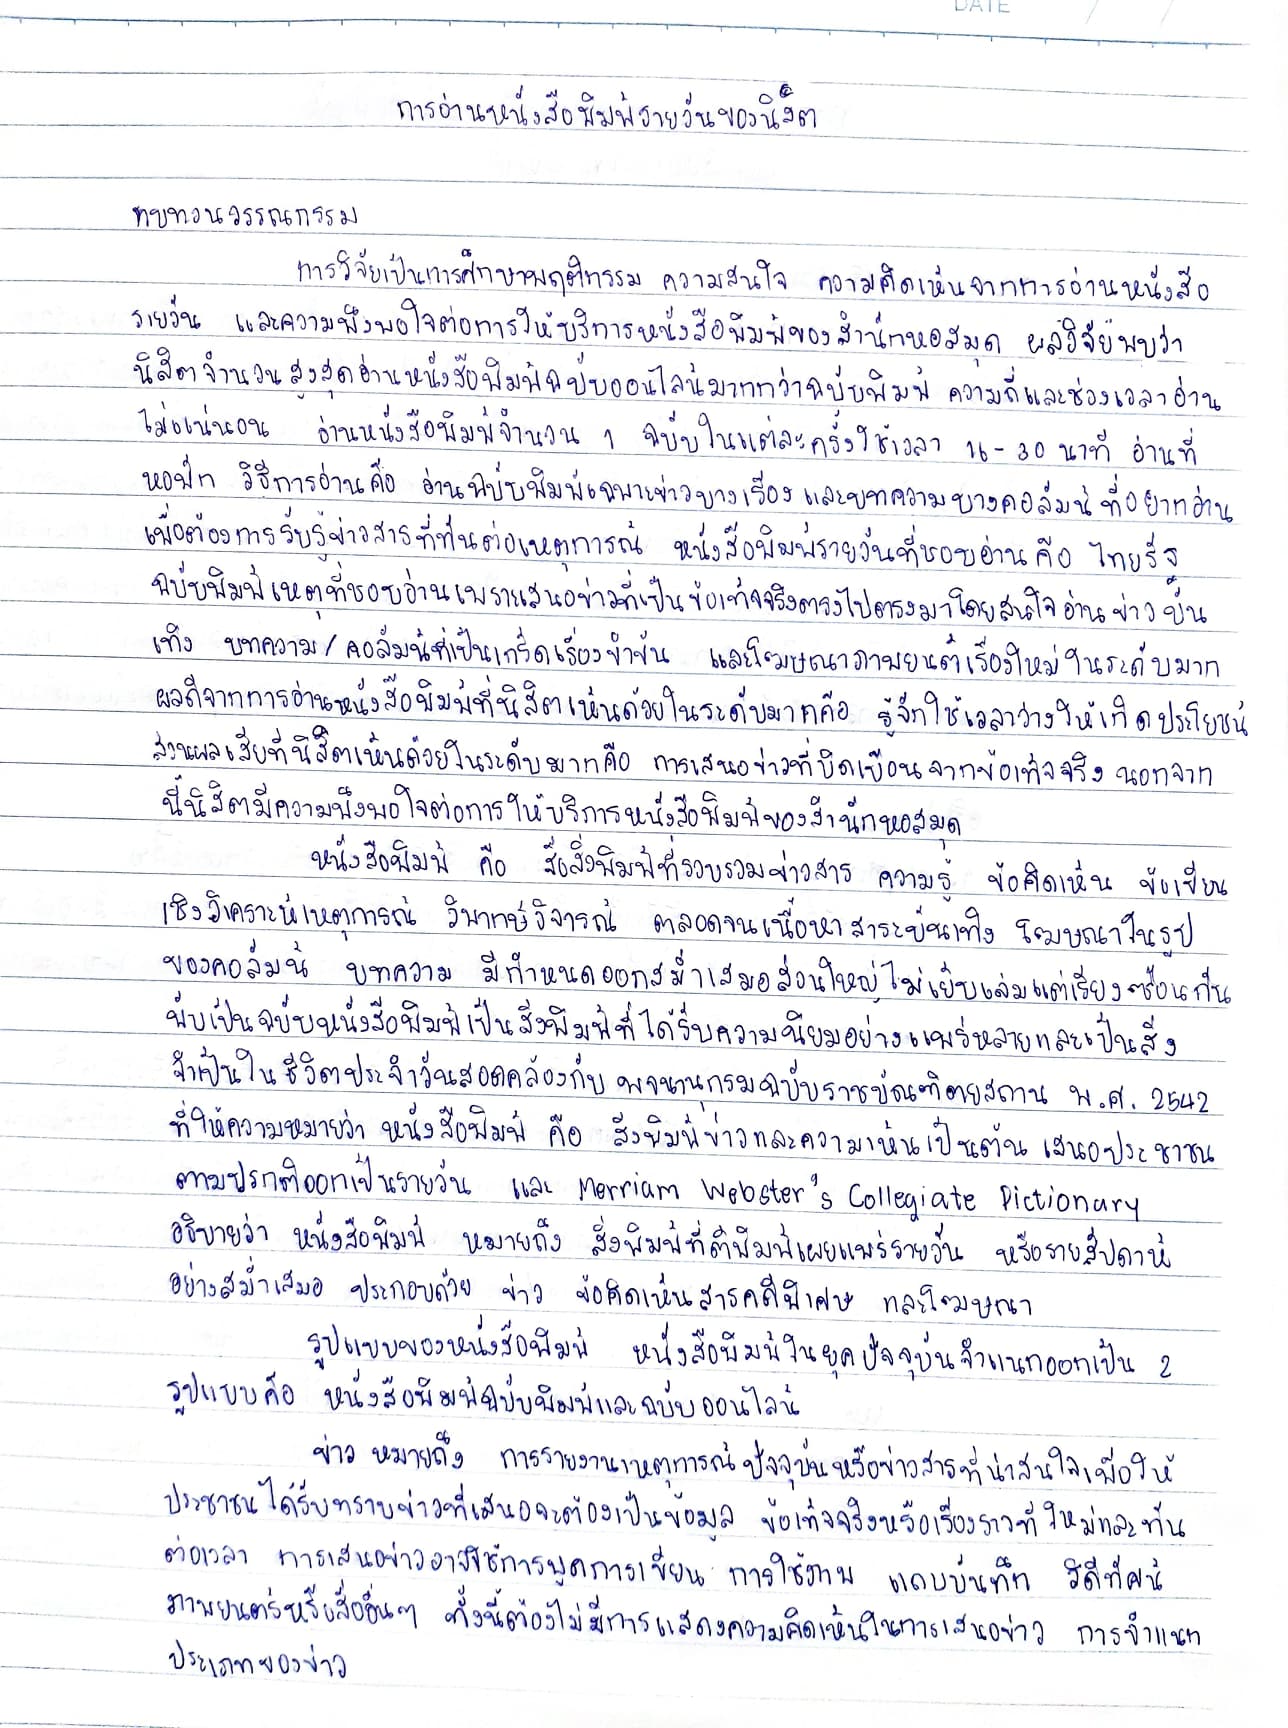 DATE / /
การอ่านหนังสือพิมพ์รายวันของนิสิต
ทบทวนวรรณกรรม
การวิจัยเป็นการศึกษาพฤติกรรม ความสนใจ ความคิดเห็นจากการอ่านหนังสือ
รายวัน และความพึงพอใจต่อการให้บริการหนังสือพิมพ์ของสำนักหอสมุด ผลวิจัยพบว่า
นิสิตจำนวนสูงสุดอ่านหนังสือพิมพ์ฉบับออนไลน์มากกว่าฉบับพิมพ์ ความถี่และช่วงเวลาอ่าน
ไม่แน่นอน อ่านหนังสือพิมพ์จำนวน 1 ฉบับในแต่ละครั้งใช้เวลา 16-30 นาที อ่านที่
หอพัก วิธีการอ่านคือ อ่านฉบับพิมพ์เฉพาะข่าวบางเรื่องและบทความบางคอลัมน์ที่อยากอ่าน
เพื่อต้องการรับรู้ข่าวสารที่ทันต่อเหตุการณ์ หนังสือพิมพ์รายวันที่ชอบอ่านคือ ไทยรัฐ
ฉบับพิมพ์เหตุที่ชอบอ่านเพราะเสนอข่าวที่เป็นข้อเท็จจริงตรงไปตรงมาโดยสนใจอ่านข่าวบัน
เทิง บทความ/คอลัมน์ที่เป็นเกร็ดเรื่องขำขัน และโฆษณาภาพยนต์เรื่องใหม่ในระดับมาก
ผลดีจากการอ่านหนังสือพิมพ์ที่นิสิตเห็นด้วยในระดับมากคือ รู้จักใช้เวลาว่างให้เกิดประโยชน์
ส่วนผลเสียที่นิสิตเห็นด้วยในระดับมากคือ การเสนอข่าวที่บิดเบือนจากข้อเท็จจริง นอกจาก
นี้นิสิตมีความพึงพอใจต่อการให้บริการหนังสือพิมพ์ของสำนักหอสมุด
หนังสือพิมพ์ คือ สื่อสิ่งพิมพ์ที่รวบรวมข่าวสาร ความรู้ ข้อคิดเห็น ข้อเขียน
เชิงวิเคราะห์เหตุการณ์ วิพากษ์วิจารณ์ ตลอดจนเนื้อหาสาระบันเทิง โฆษณาในรูป
ของคอลัมน์ บทความ มีกำหนดออกสม่ำเสมอส่วนใหญ่ไม่เย็บเล่มแต่เรียงซ้อนกัน
พับเป็นฉบับหนังสือพิมพ์เป็นสิ่งพิมพ์ที่ได้รับความนิยมอย่างแพร่หลายและเป็นสิ่ง
จำเป็นในชีวิตประจำวันสอดคล้องกับ พจนานุกรมฉบับราชบัณฑิตยสถาน พ.ศ. 2542
ที่ให้ความหมายว่า หนังสือพิมพ์ คือ สิ่งพิมพ์ข่าวและความเห็นเป็นต้น เสนอประชาชน
ตามปรกติออกเป็นรายวัน และ Merriam Webster's Collegiate Dictionary
อธิบายว่า หนังสือพิมพ์ หมายถึง สิ่งพิมพ์ที่ตีพิมพ์เผยแพร่รายวัน หรือรายสัปดาห์
อย่างสม่ำเสมอ ประกอบด้วย ข่าว ข้อคิดเห็นสารคดีพิเศษ และโฆษณา
รูปแบบของหนังสือพิมพ์ หนังสือพิมพ์ในยุคปัจจุบันจำแนกออกเป็น 2
รูปแบบคือ หนังสือพิมพ์ฉบับพิมพ์และฉบับออนไลน์
ข่าว หมายถึง การรายงานเหตุการณ์ปัจจุบันหรือข่าวสารที่น่าสนใจเพื่อให้
ประชาชนได้รับทราบข่าวที่เสนอจะต้องเป็นข้อมูล ข้อเท็จจริงหรือเรื่องราวที่ใหม่และทัน
ต่อเวลา การเสนอข่าวอาจใช้การพูดการเขียน การใช้ภาพ แถบบันทึก วีดีทัศน์
ภาพยนตร์หรือสื่ออื่นๆ ทั้งนี้ต้องไม่มีการแสดงความคิดเห็นในการเสนอข่าว การจำแนก
ประเภทของข่าว